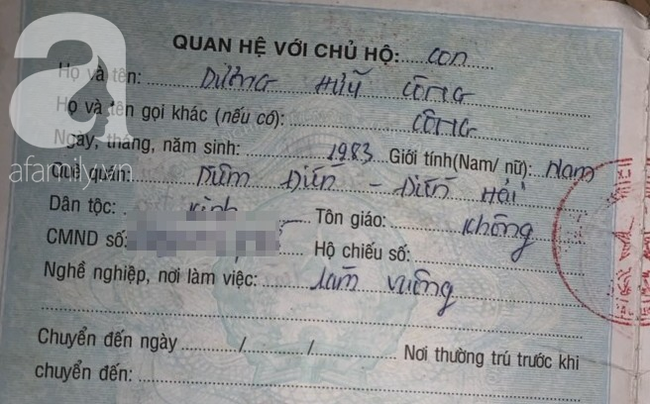 QUAN HỆ VỚI CHỦ HỘ: con
Họ và tên: DƯƠNG HỮU CÔNG
Họ và tên gọi khác (nếu có): CÔNG
Ngày, tháng, năm sinh: 1983 Giới tính(Nam/ nữ): Nam
Quê quán: Diêm Điền - Diêm Hải
Dân tộc: Kinh Tôn giáo: Không
CMND số: Hộ chiếu số:
Nghề nghiệp, nơi làm việc: Làm ruộng
Chuyển đến ngày / / Nơi thường trú trước khi
chuyển đến:
a
afamily.vn